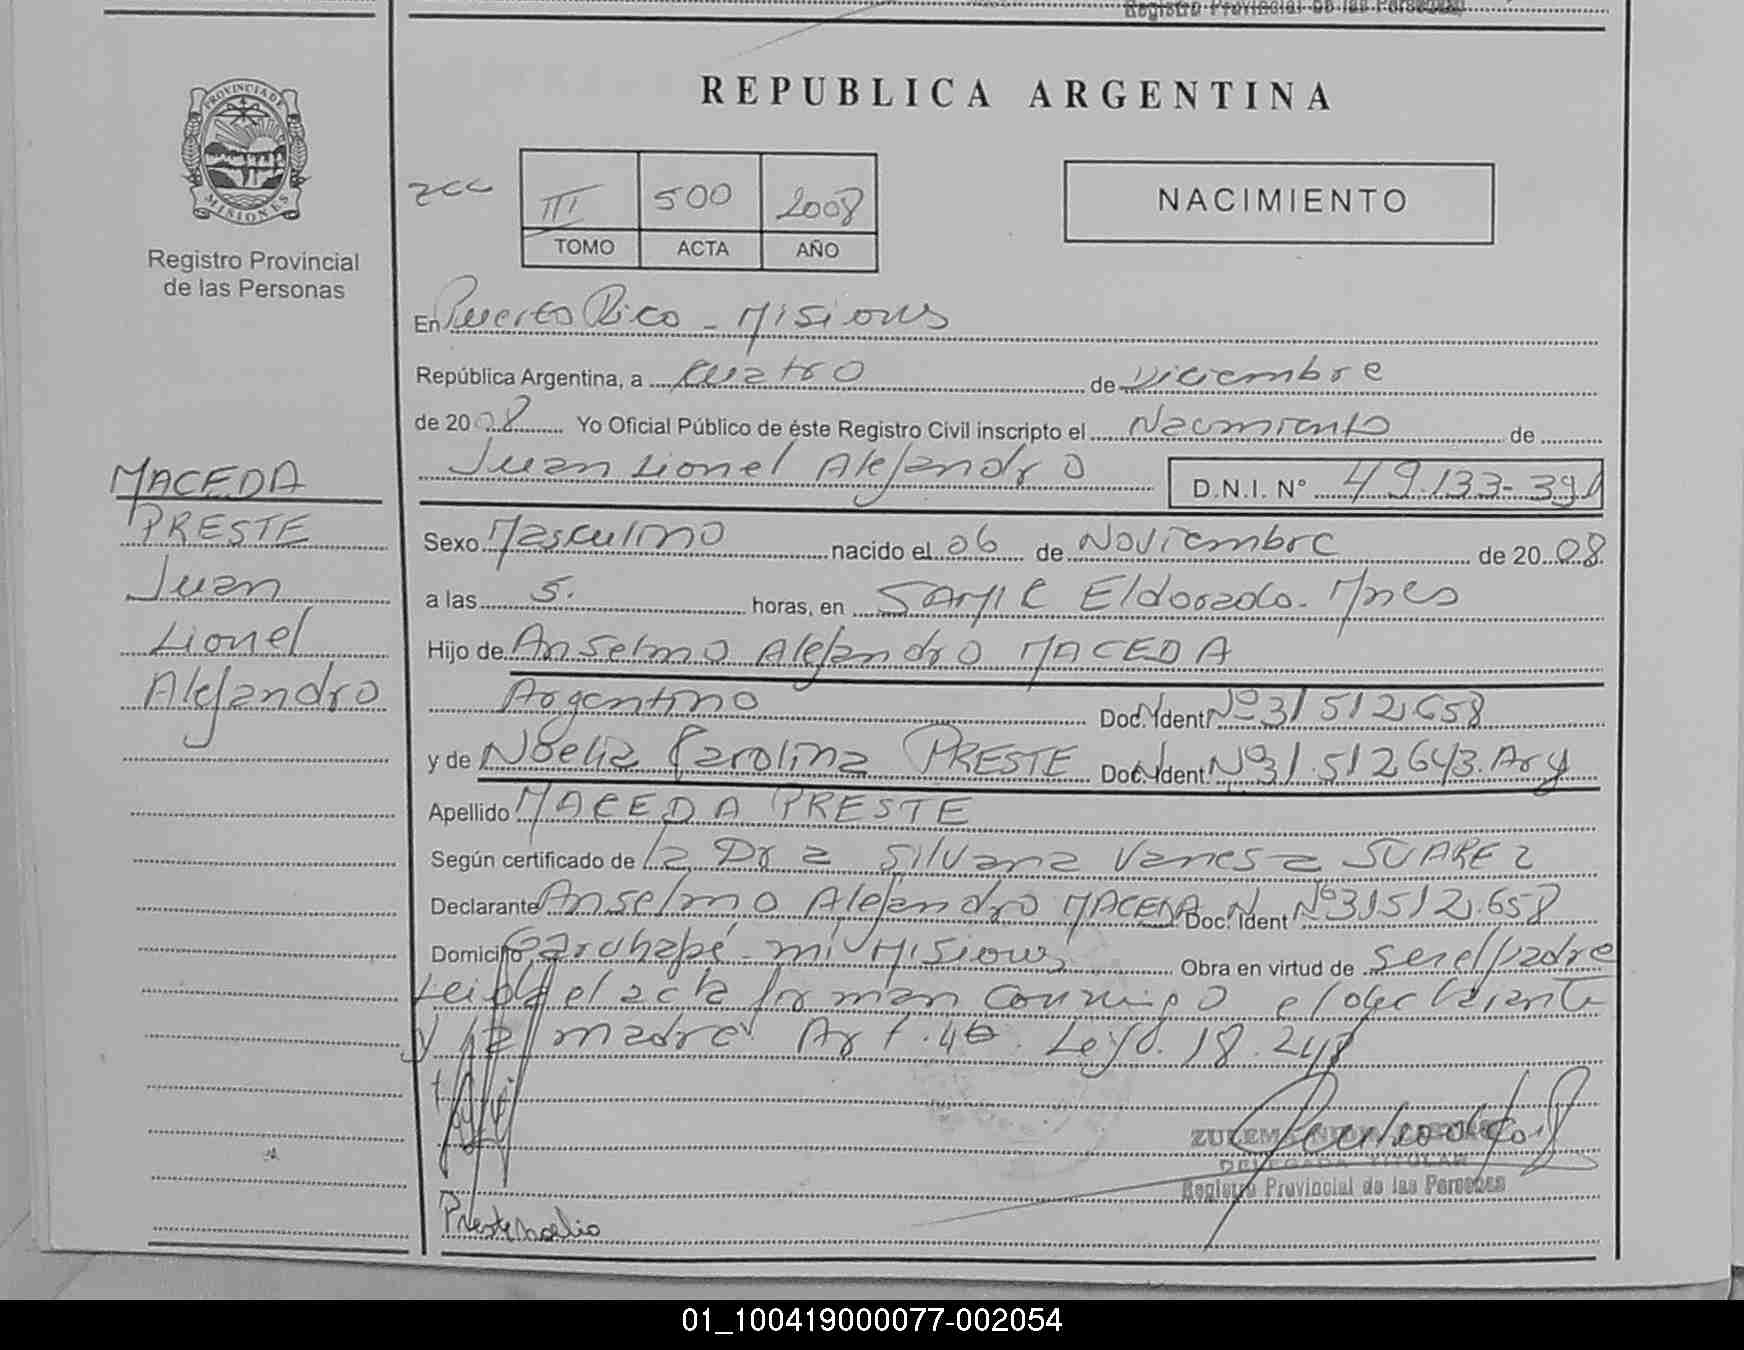 Registro Provincial de las Personas
PROVINCIA DE
MISIONES
Registro Provincial
de las Personas
REPUBLICA ARGENTINA
III 500 2008
TOMO ACTA AÑO
NACIMIENTO
En Puerto Rico - Misiones
República Argentina, a cuatro de Diciembre
de 2008 Yo Oficial Público de éste Registro Civil inscripto el Nacimiento de
Juan Lionel Alejandro D.N.I. N° 49.133-391
MACEDA
PRESTE
Juan
Lionel
Alejandro
Sexo Masculino nacido el 06 de Noviembre de 2008
a las 5. horas, en SAMIC Eldorado. Mnes
Hijo de Anselmo Alejandro MACEDA
Argentino Doc. Ident. Nº 31512.658
y de Noelia Carolina PRESTE Doc. Ident. Nº 31.512643. Arg
Apellido MACEDA PRESTE
Según certificado de la Dra Silvana Vanesa SUAREZ
Declarante Anselmo Alejandro MACEDA Doc. Ident Nº 31512.658
Domicilio Garuhapé - mi, Misiones Obra en virtud de ser el padre
Leida el acta firman conmigo el declarante
y la madre. Art. 4º. Ley. 18.248
DELEGADA TITULAR
Registro Provincial de las Personas
Preste Noelia
01_100419000077-002054